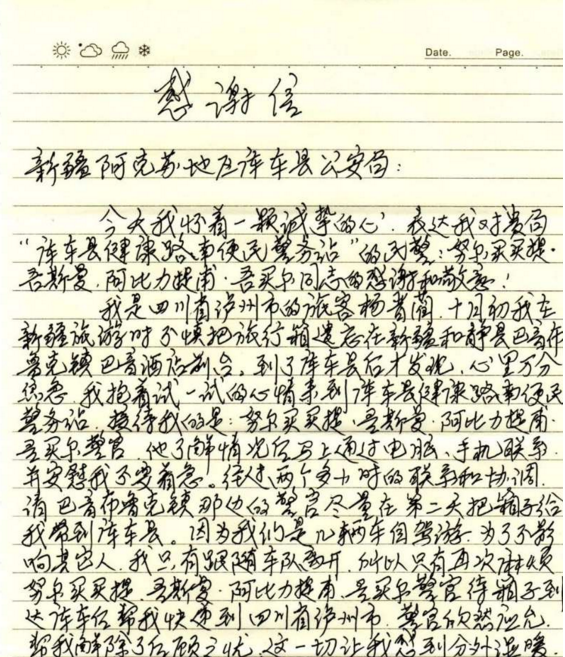 Date.
Page.
感谢信
新疆阿克苏地区库车县公安局：
今天我怀着一颗诚挚的心，表达我对贵局
“库车县健康路南便民警务站”的民警：努尔买买提·
吾斯曼、阿比力提甫·吾买尔同志的感谢和敬意！
我是四川省泸州市的旅客杨 十月初我在
新疆旅游时不慎把旅行箱遗忘在新疆和静县巴音布
鲁克镇巴音酒店前台。到了库车县后才发现，心里万分
焦急，我抱着试一试的心情来到库车县健康路南便民
警务站，接待我的是：努尔买买提·吾斯曼、阿比力提甫·
吾买尔警官，他了解情况后马上通过电脑、手机联系，
并安慰我不要着急。经过两个多小时的联系和协调，
请巴音布鲁克镇那边的警官尽量在第二天把箱子给
我带到库车县。因为我们是几辆车自驾游，为了不影
响其它人，我只有跟随车队离开，所以只有再次麻烦
努尔买买提·吾斯曼、阿比力提甫·吾买尔警官待箱子到
达库车后帮我快递到四川省泸州市，警官欣然应允，
帮我解除了后顾之忧，这一切让我感到分外温暖。